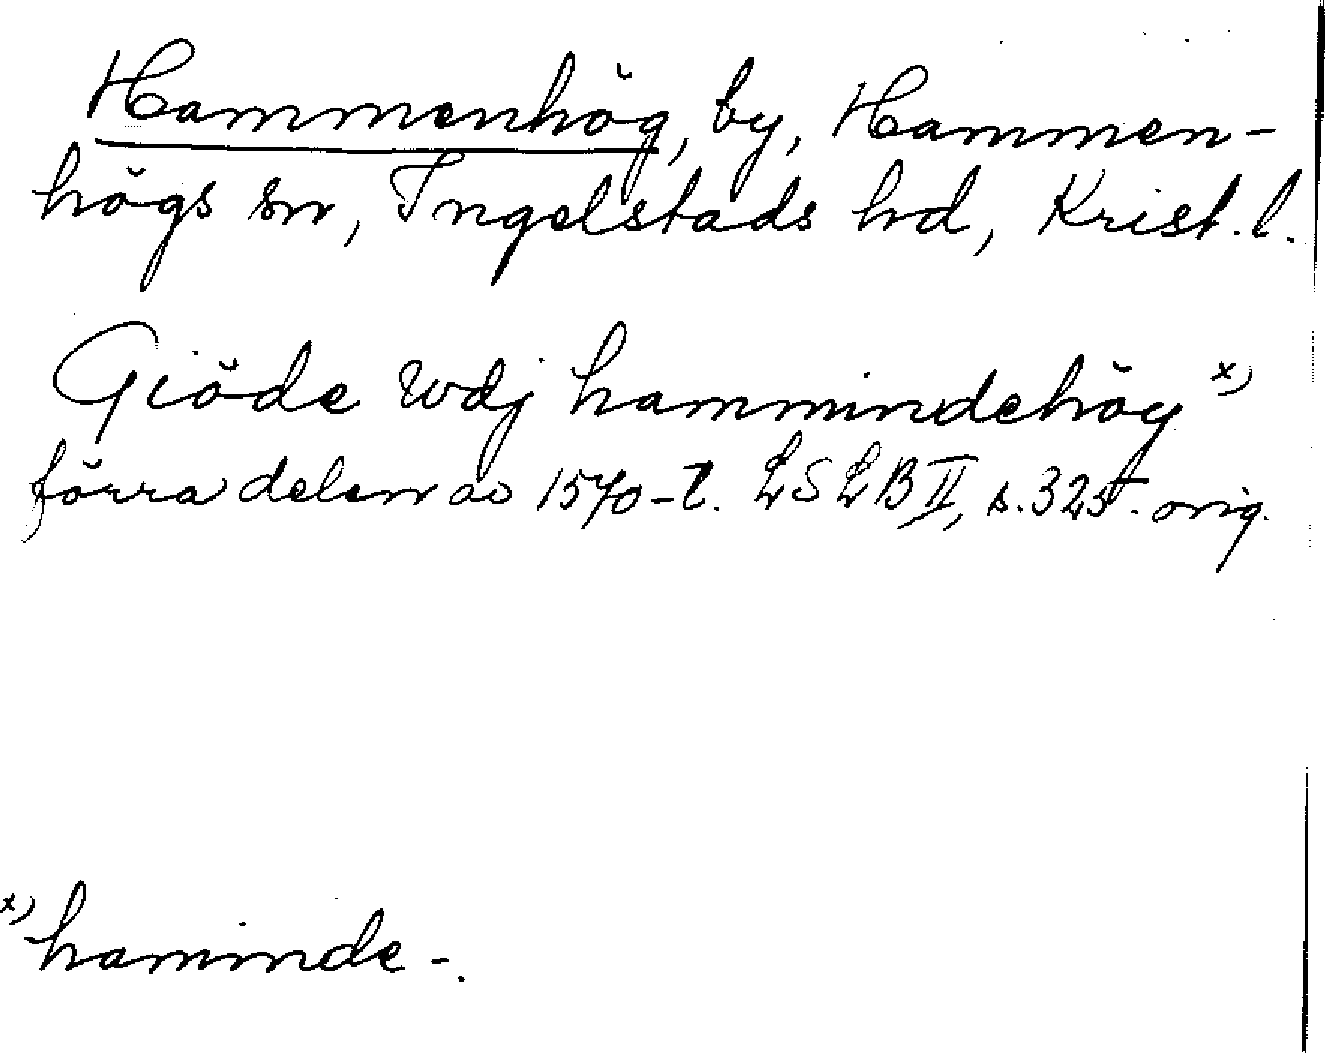 Hammenhög, by, Hammen-
högs sn, Ingelstads hd, Krist. l.
Giöde wdj hammindehöy x)
förra delen av 1570-t. LSLB II, s. 325. orig.
x) haminde-.